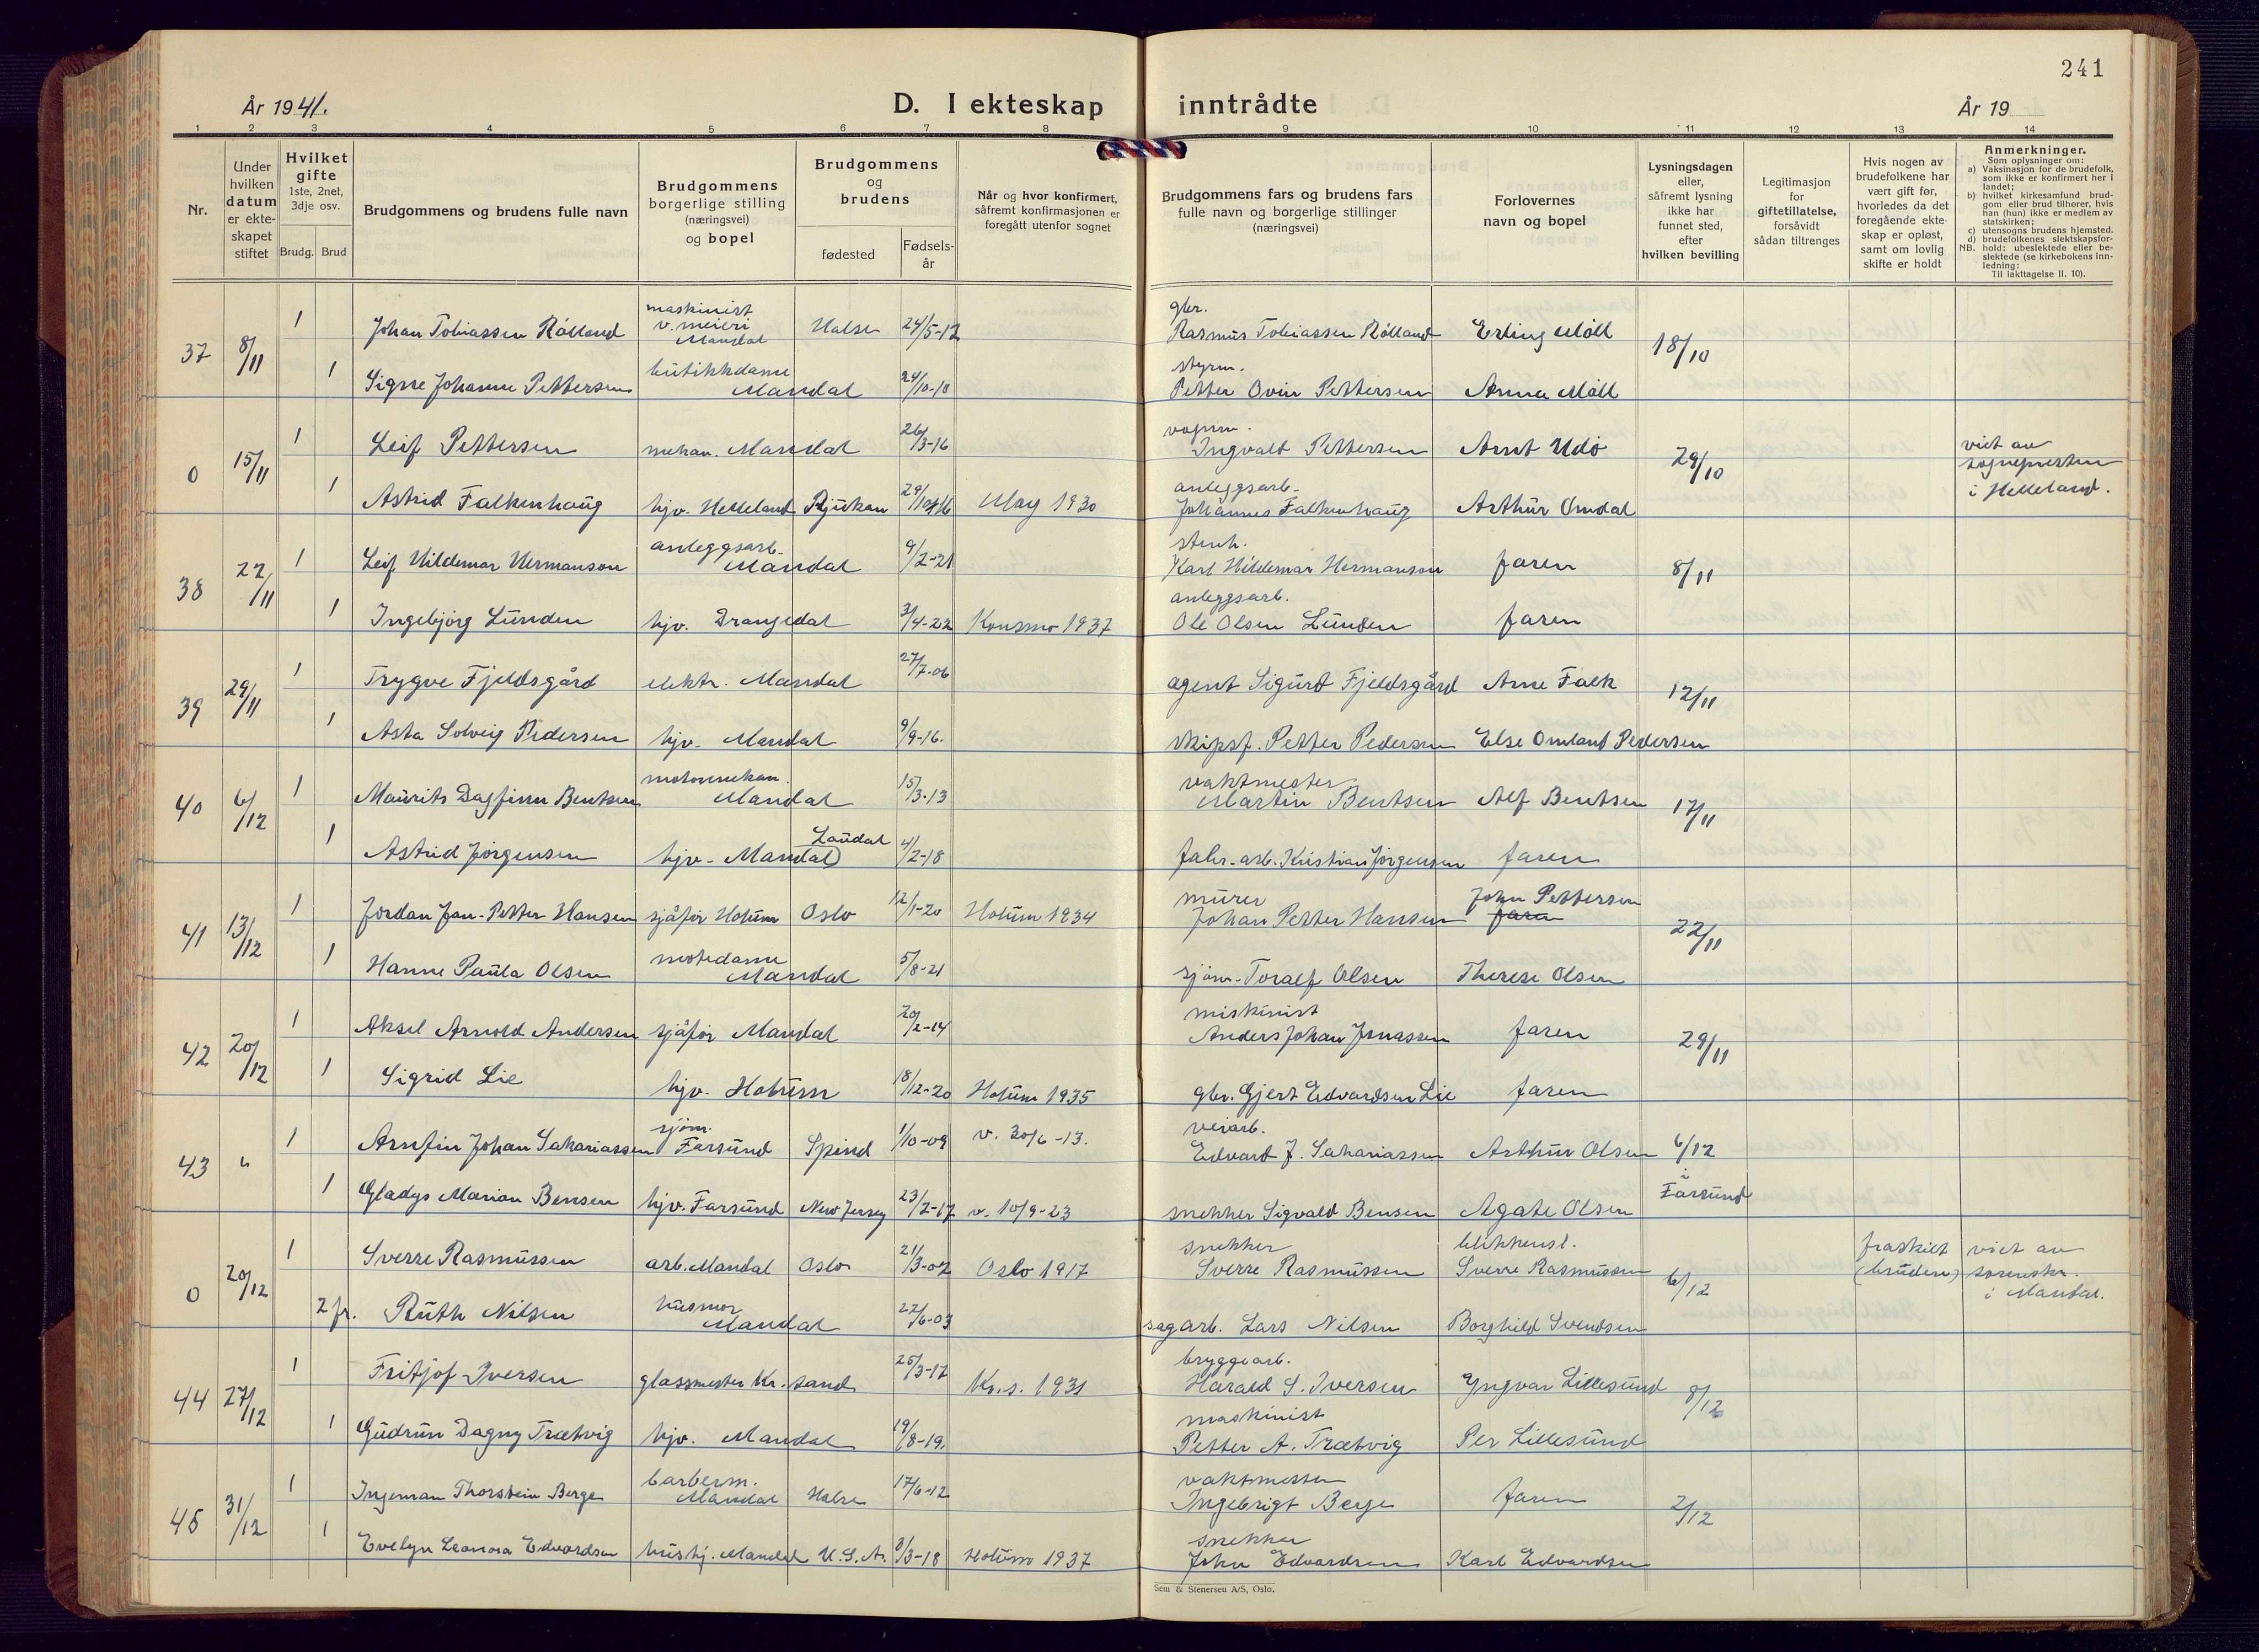 241
År 1941.
D. I ekteskap inntrådte
År 19
1 2 3 4 5 6 7 8 9 10 11 12 13 14
Nr.
Under
hvilken
datum
er ekte-
skapet
stiftet
Hvilket
gifte
1ste, 2net,
3dje osv.
Brudg. Brud
Brudgommens og brudens fulle navn
Brudgommens
borgerlige stilling
(næringsvei)
og bopel
Brudgommens
og
brudens
fødested
Fødsels-
år
Når og hvor konfirmert,
såfremt konfirmasjonen er
foregått utenfor sognet
Brudgommens fars og brudens fars
fulle navn og borgerlige stillinger
(næringsvei)
Forlovernes
navn og bopel
Lysningsdagen
eller,
såfremt lysning
ikke har
funnet sted,
efter
hvilken bevilling
Legitimasjon
for
giftetillatelse,
forsåvidt
sådan tiltrenges
Hvis nogen av
brudefolkene har
vært gift før,
hvorledes da det
foregående ekte-
skap er opløst,
samt om lovlig
skifte er holdt
Anmerkninger.
Som oplysninger om:
a) Vaksinasjon for de brudefolk,
som ikke er konfirmert her i
landet;
b) hvilket kirkesamfund brud-
gom eller brud tilhører, hvis
han (hun) ikke er medlem av
statskirken;
c) utensogns brudens hjemsted.
d) brudefolkenes slektskapsfor-
NB. hold: ubeslektede eller be-
slektede (se kirkebokens inn-
ledning:
Til iakttagelse II. 10).
37 8/11 1 Johan Tobiassen Rölland maskinist v. meieri Mandal Halse 24/5-12 gbr. Rasmus Tobiassen Rölland Erling Möll 18/10
1 Signe Johanne Pettersen butikkdame Mandal 24/10-10 styrm. Petter Ovin Pettersen Anna Möll
0 15/11 1 Leif Pettersen mekan. Mandal 26/3-16 Ingvald Pettersen Arnt Udö 29/10 viet av sognepresten i Helleland.
1 Astrid Falkenhaug hjv. Helleland Rjukan 29/ -16 May 1930 anleggsarb. Johannes Falkenhaug Arthur Omdal
38 22/11 1 Leif Hildemar Hermanson anleggsarb. Mandal 9/2-21 Karl Hildemar Hermanson faren 8/11
1 Ingebjörg Lunden hjv. Drangedal 3/4-22 Konsmo 1937 anleggsarb. Ole Olsen Lunden faren
39 29/11 1 Trygve Fjeldsgård elektr. Mandal 27/7-06 agent Sigurd Fjeldsgård Arne Falk 12/11
1 Asta Solveig Pedersen hjv. Mandal 9/9-16. skipsf. Petter Pedersen Else Omland Pedersen
40 6/12 1 Maurits Dagfinn Bentsen motormekan. Mandal 15/3-13 vaktmester Martin Bentsen Alf Bentsen 17/11
1 Astrid Jörgensen hjv. Mandal Laudal 4/2-18 fabr.-arb. Kristian Jörgensen faren
41 13/12 1 Jordan Jan-Petter Hansen sjåför Holum Oslo 12/1-20 Holum 1934 murer Johan Petter Hansen John Pettersen faren 22/11
1 Hanne Paula Olsen motedame Mandal 5/8-21 sjöm. Toralf Olsen Therese Olsen
42 20/12 1 Aksel Arnold Andersen sjåför Mandal 20/2-14 maskinist Anders Johan Jonassen faren 29/11
1 Sigrid Lie hjv. Holum 18/12-20 Holum 1935 gbr. Gjert Edvardsen Lie faren
43 " 1 Arnfin Johan Sakariassen sjöm. Farsund Spind 1/10-09 v. 30/6-13. Edvard J. Sakariassen Arthur Olsen 6/12 i Farsund
1 Gladys Marion Bensen hjv. Farsund New Jersey 23/2-17 v. 10/9-23 snekker Sigvald Bensen Agate Olsen
0 20/12 1 Sverre Rasmussen arb. Mandal Oslo 21/3-02 Oslo 1917 snekker Sverre Rasmussen blikkensl. Sverre Rasmussen 6/12 fraskilt (bruden) viet av sorenskr. i Mandal.
2 fr. Ruth Nilsen husmor Mandal 22/6-03 sagarb. Lars Nilsen Borghild Svendsen
44 27/12 1 Fritjof Iversen glassmester Kr.sand 25/3-17 Kr.s. 1931 bryggearb. Harald S. Iversen Yngvar Lillesund 8/12
1 Gudrun Dagny Trætvig hjv. Mandal 19/8-19. maskinist Petter A. Trætvig Per Lillesund
45 31/12 1 Ingeman Thorstein Berge barberm. Mandal Halse 17/6-12 vaktmester Ingebrigt Berge faren 2/12
1 Evelyn Leonora Edvardsen hushj. Mandal U.S.A. 8/3-18 Holum 1937 snekker John Edvardsen Karl Edvardsen
Sem & Stenersen A/S, Oslo.